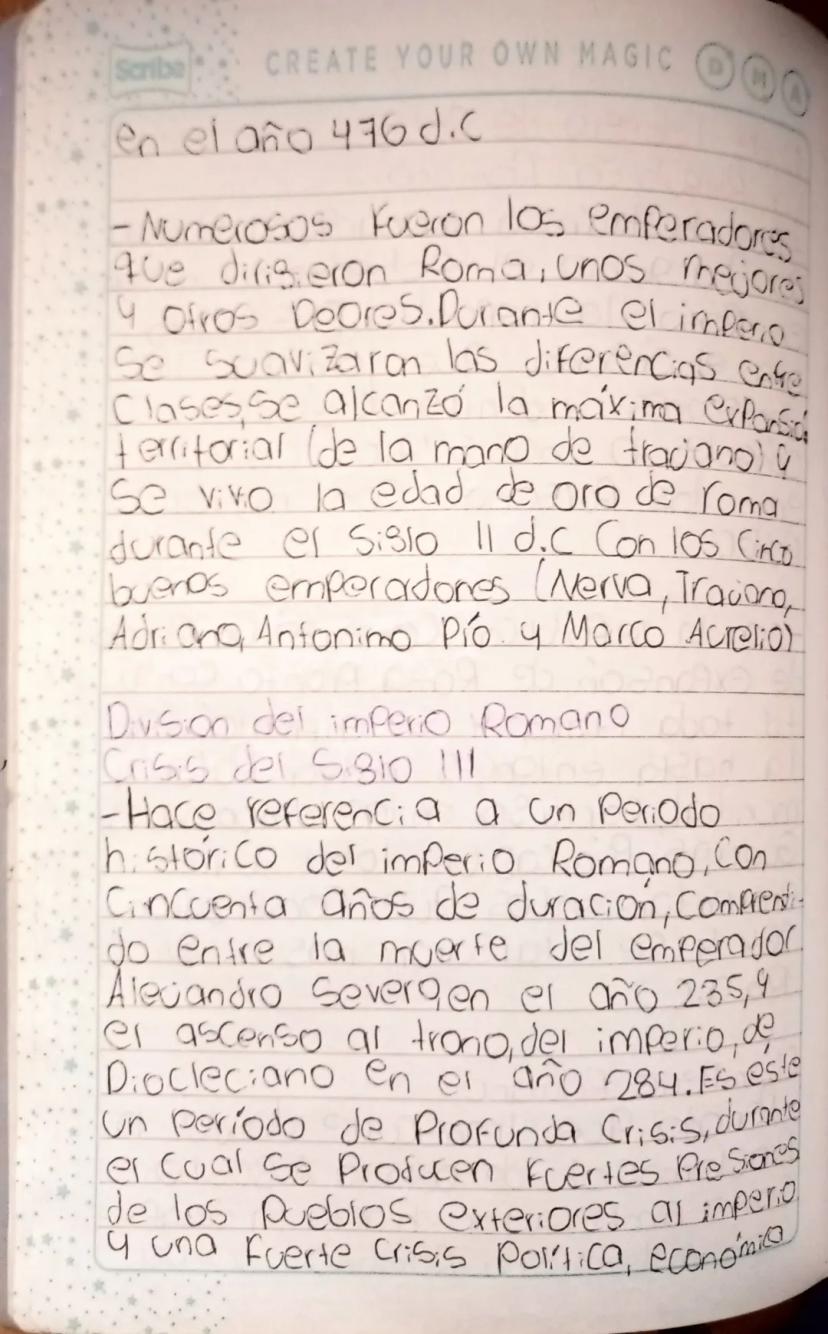 Scribe CREATE YOUR OWN MAGIC D M A
en el año 476 d.C
- Numerosos fueron los emperadores
que dirigieron Roma, unos mejores
y otros peores. Durante el imperio
se suavizaron las diferencias entre
clases, se alcanzó la máxima expansió
territorial (de la mano de trajano) y
se vivo la edad de oro de roma
durante el siglo II d.c con los cinco
buenos emperadores (Nerva, Trajano,
Adriano, Antonimo Pío y Marco Aurelio)
Division del imperio Romano
Crisis del siglo III
- Hace referencia a un periodo
histórico del imperio Romano, con
cincuenta años de duración, comprendi-
do entre la muerte del emperador
Alejandro Severo, en el año 235, y
el ascenso al trono, del imperio, de
Diocleciano en el año 284. Es éste
un período de profunda crisis, durante
el cual se producen fuertes presiones
de los pueblos exteriores al imperio
y una fuerte crisis política, económica